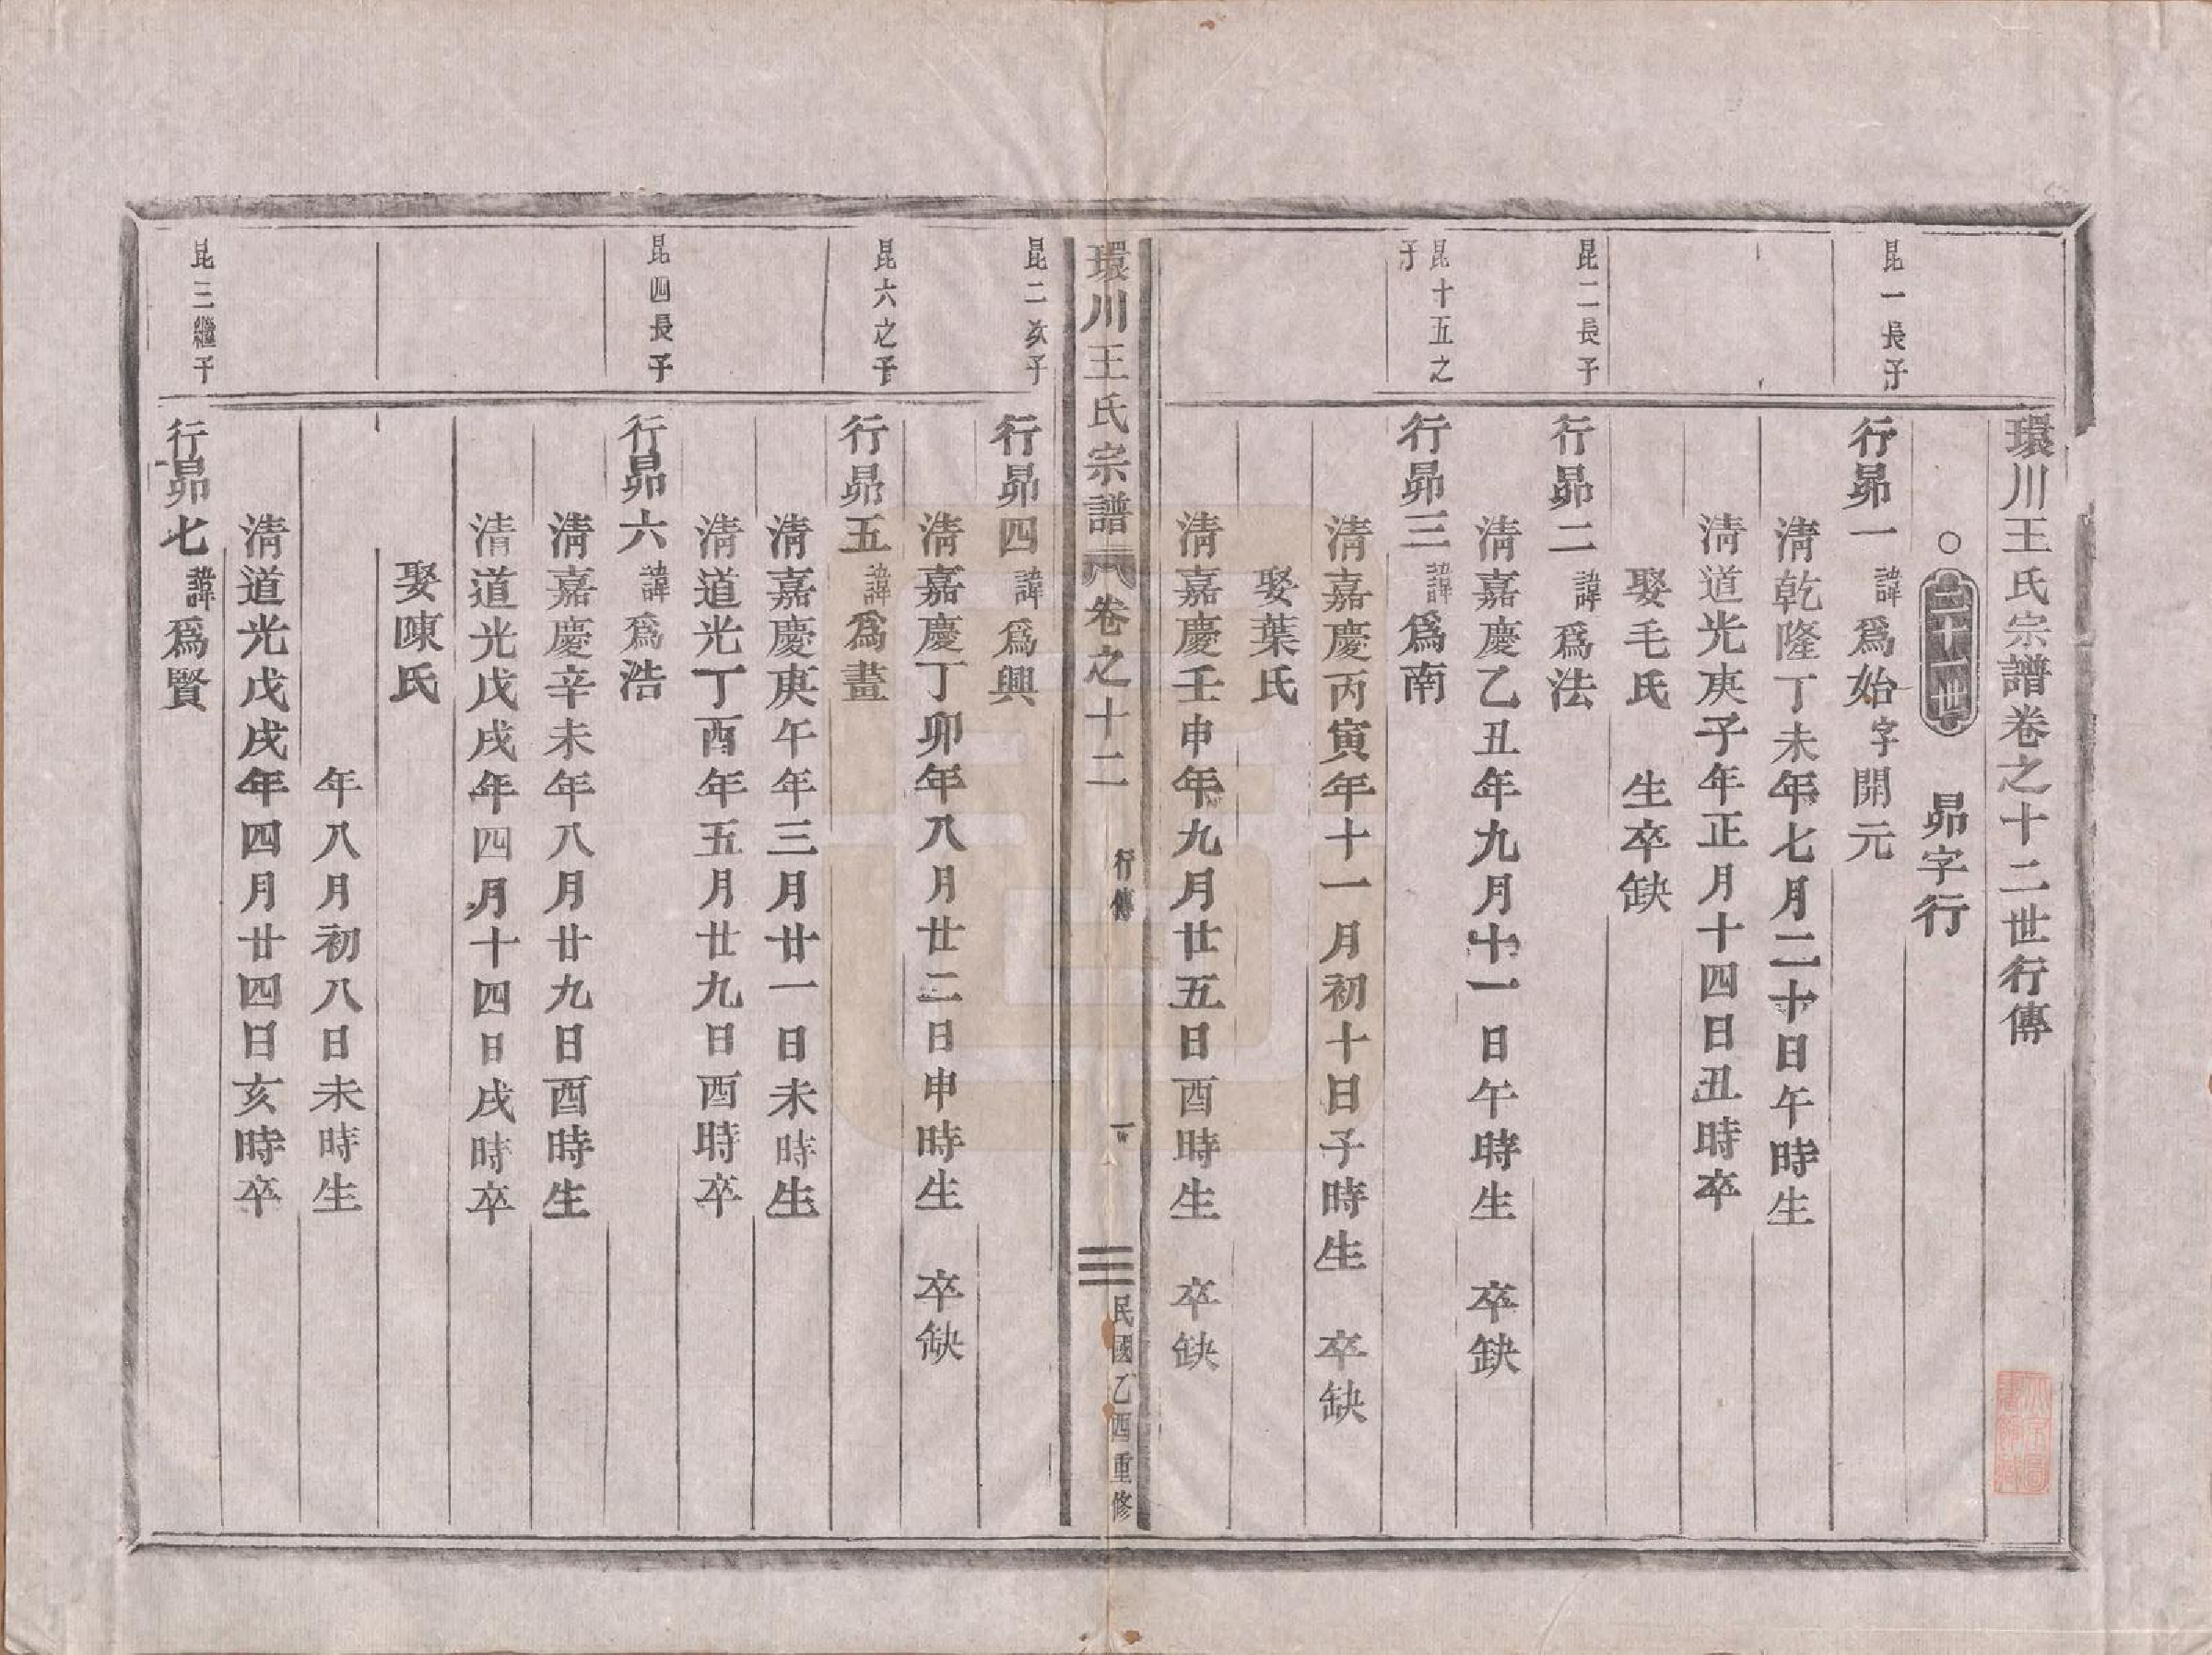 環川王氏宗譜卷之十二世行傳
○二十一世 昴字行
昆一長子
行昴一 諱爲始 字開元
淸乾隆丁未年七月二十日午時生
淸道光庚子年正月十四日丑時卒
娶毛氏 生卒缺
昆二長子
行昴二 諱爲法
淸嘉慶乙丑年九月十一日午時生 卒缺
昆十五之子
行昴三 諱爲南
淸嘉慶丙寅年十一月初十日子時生 卒缺
娶葉氏
淸嘉慶壬申年九月廿五日酉時生 卒缺
環川王氏宗譜 卷之十二 行傳 一 民國乙酉重修
昆二次子
行昴四 諱爲興
淸嘉慶丁卯年八月廿二日申時生 卒缺
昆六之子
行昴五 諱爲畫
淸嘉慶庚午年三月廿一日未時生
淸道光丁酉年五月廿九日酉時卒
昆四長子
行昴六 諱爲浩
淸嘉慶辛未年八月廿九日酉時生
淸道光戊戌年四月十四日戌時卒
娶陳氏
年八月初八日未時生
淸道光戊戌年四月廿四日亥時卒
昆三繼子
行昴七 諱爲賢